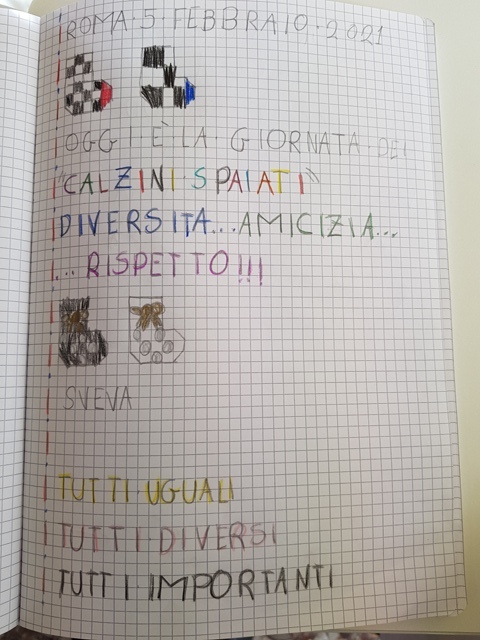 ROMA·5·FEBBRAIO·2021
OGGI È LA GIORNATA DEI
"CALZINI SPAIATI"
DIVERSITA...AMICIZIA...
... RISPETTO!!!
SVEVA
TUTTI UGUALI
TUTTI DIVERSI
TUTTI IMPORTANTI